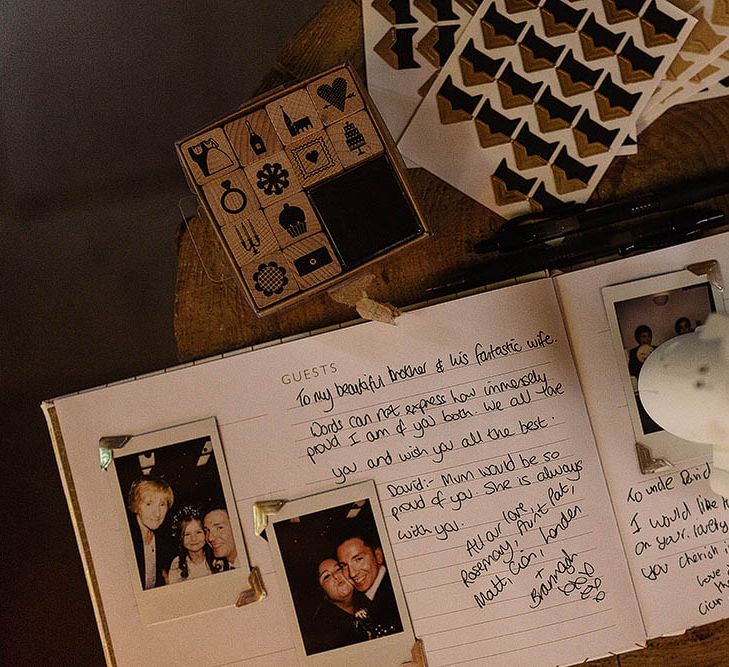 GUESTS
To my beautiful brother & his fantastic wife.
Words can not express how immensely
proud I am of you both. We all love
you and wish you all the best.
David:- Mum would be so
proud of you. She is always
with you.
All our love,
Rosemary, Aunt Pat,
Matt, Cian, London
+
Brannagh
xxx
xx
To uncle David
I would like
on your lovely
you cherish
Love
Cian